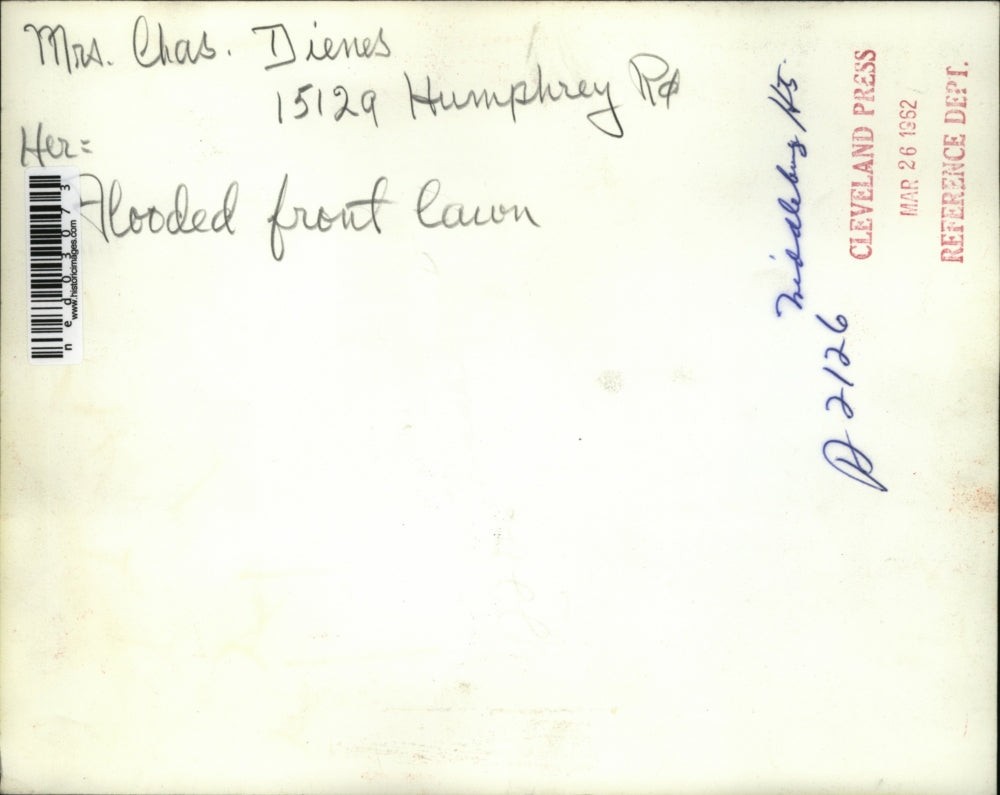 Mrs. Chas. Dienes
15129 Humphrey Rd
Her=
Flooded front lawn
ned03073
www.historicimages.com
Middleburg Hts.
P 2126
CLEVELAND PRESS
MAR 26 1962
REFERENCE DEPT.